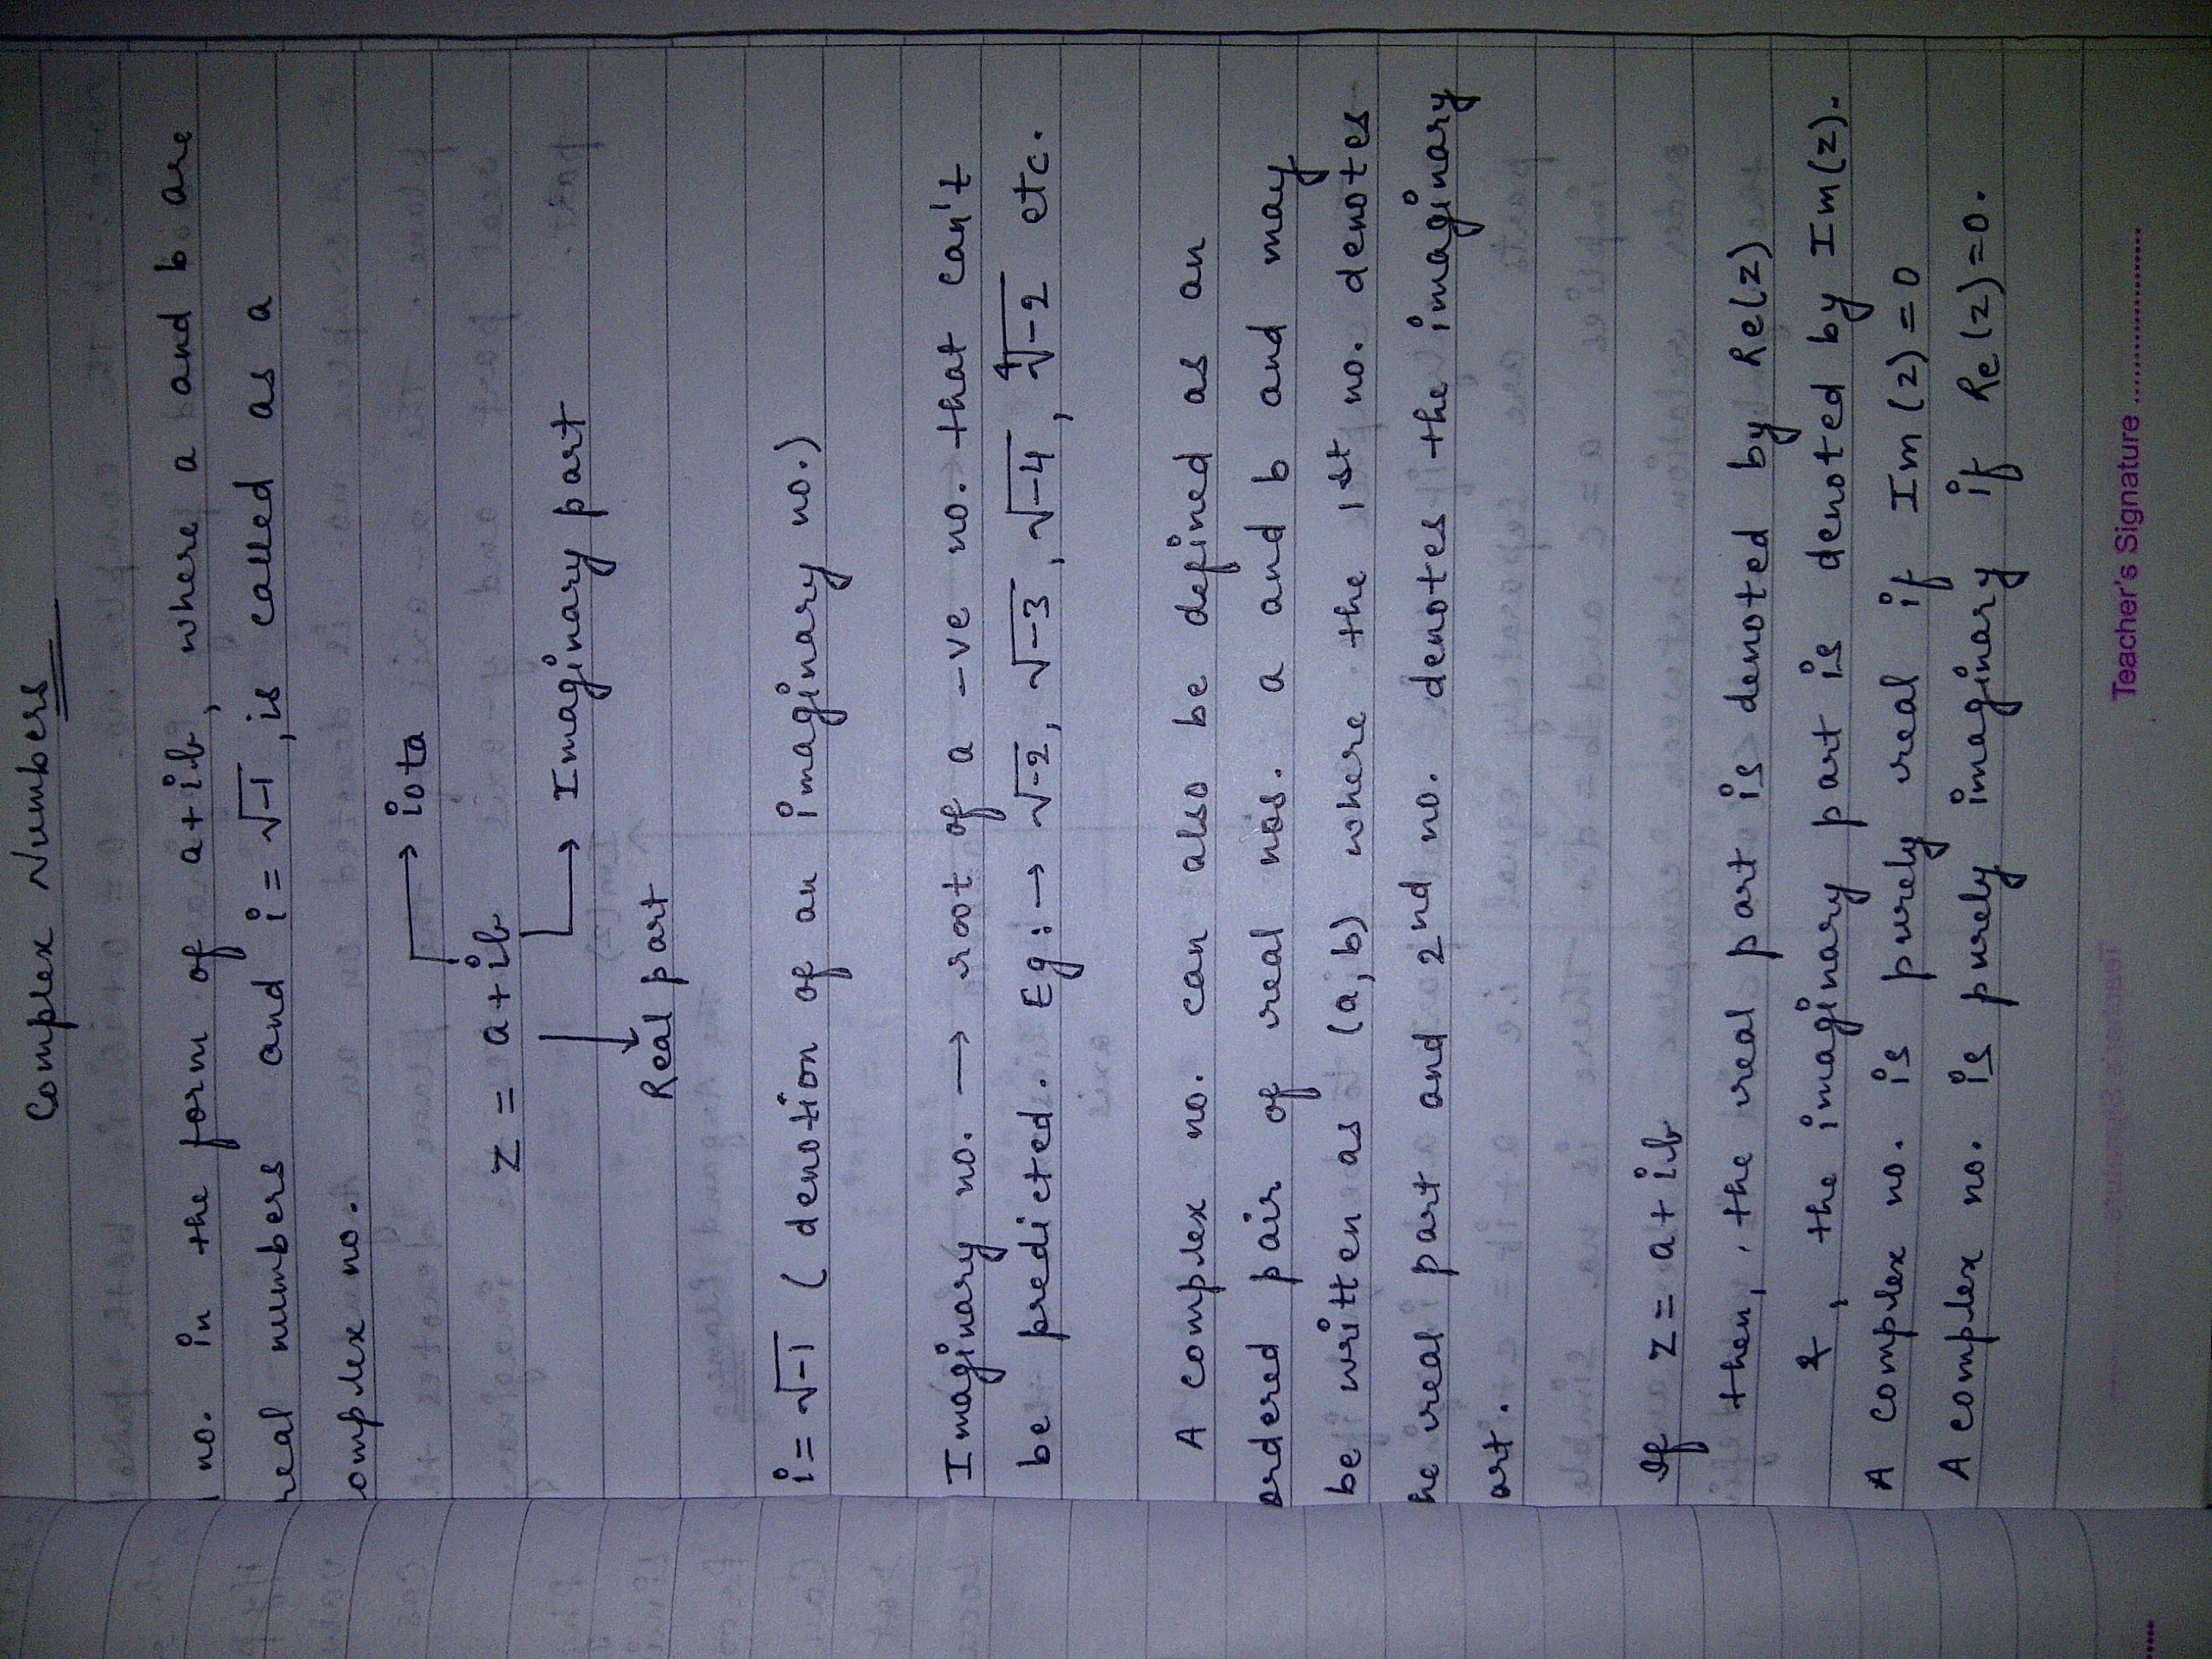 Complex Numbers
no. in the form of a+ib, where a and b are
real numbers and i = √-1, is called as a
omplex no.
→ iota
z = a+ib
→ Imaginary part
Real part
i = √-1 ( denotion of an imaginary no.)
Imaginary no. → root of a -ve no. that can't
be predicted. Eg :→ √-2, √-3, √-4, ∜-2 etc.
A complex no. can also be defined as an
ordered pair of real nos. a and b and may
be written as (a, b) where the 1st no. denotes
he real part and 2nd no. denotes the imaginary
art.
If z = a + ib
then, the real part is denoted by Re(z)
&, the imaginary part is denoted by Im(z).
A complex no. is purely real if Im (z) = 0
A complex no. is purely imaginary if Re (z) = 0.
Teacher's Signature .....................